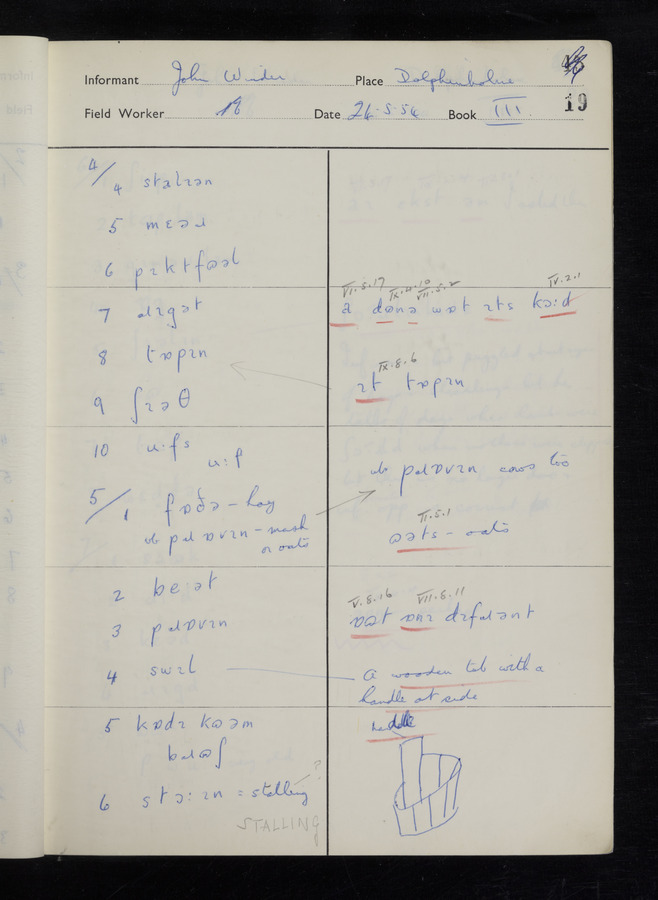 Informant John Winder Place Dolphinholme
19
Field Worker Date 24-5-54 Book III
4/4 stalɪən
5 mɛəɹ
6 pɪktfɔəl
7 dɪgət
8 tɒpɪn
9 ʃɪəθ
10 u:fs
u:f
5/1 fɒðə – hay
ub pɹɒvɪn – mash
or oats
2 beət
3 pɹɒvɪn
4 swɪl
5 kɒdɪ kɔəm
bɹɒʃ
6 stɔ:ɪn = stalling ?
STALLING
VI.5.17 IX.4.10 VII.5.2 IV.2.1
a dɒnə wɒt ɪts kɔ:d
IX.8.6
ɪt tɒpɪn
ub pɹɒvɪn cows too
II.5.1
ɔəts – oats
V.8.16 VII.8.11
ɒɔt ɒnɪ dɪfɹənt
a wooden tub with a
handle at side
handle